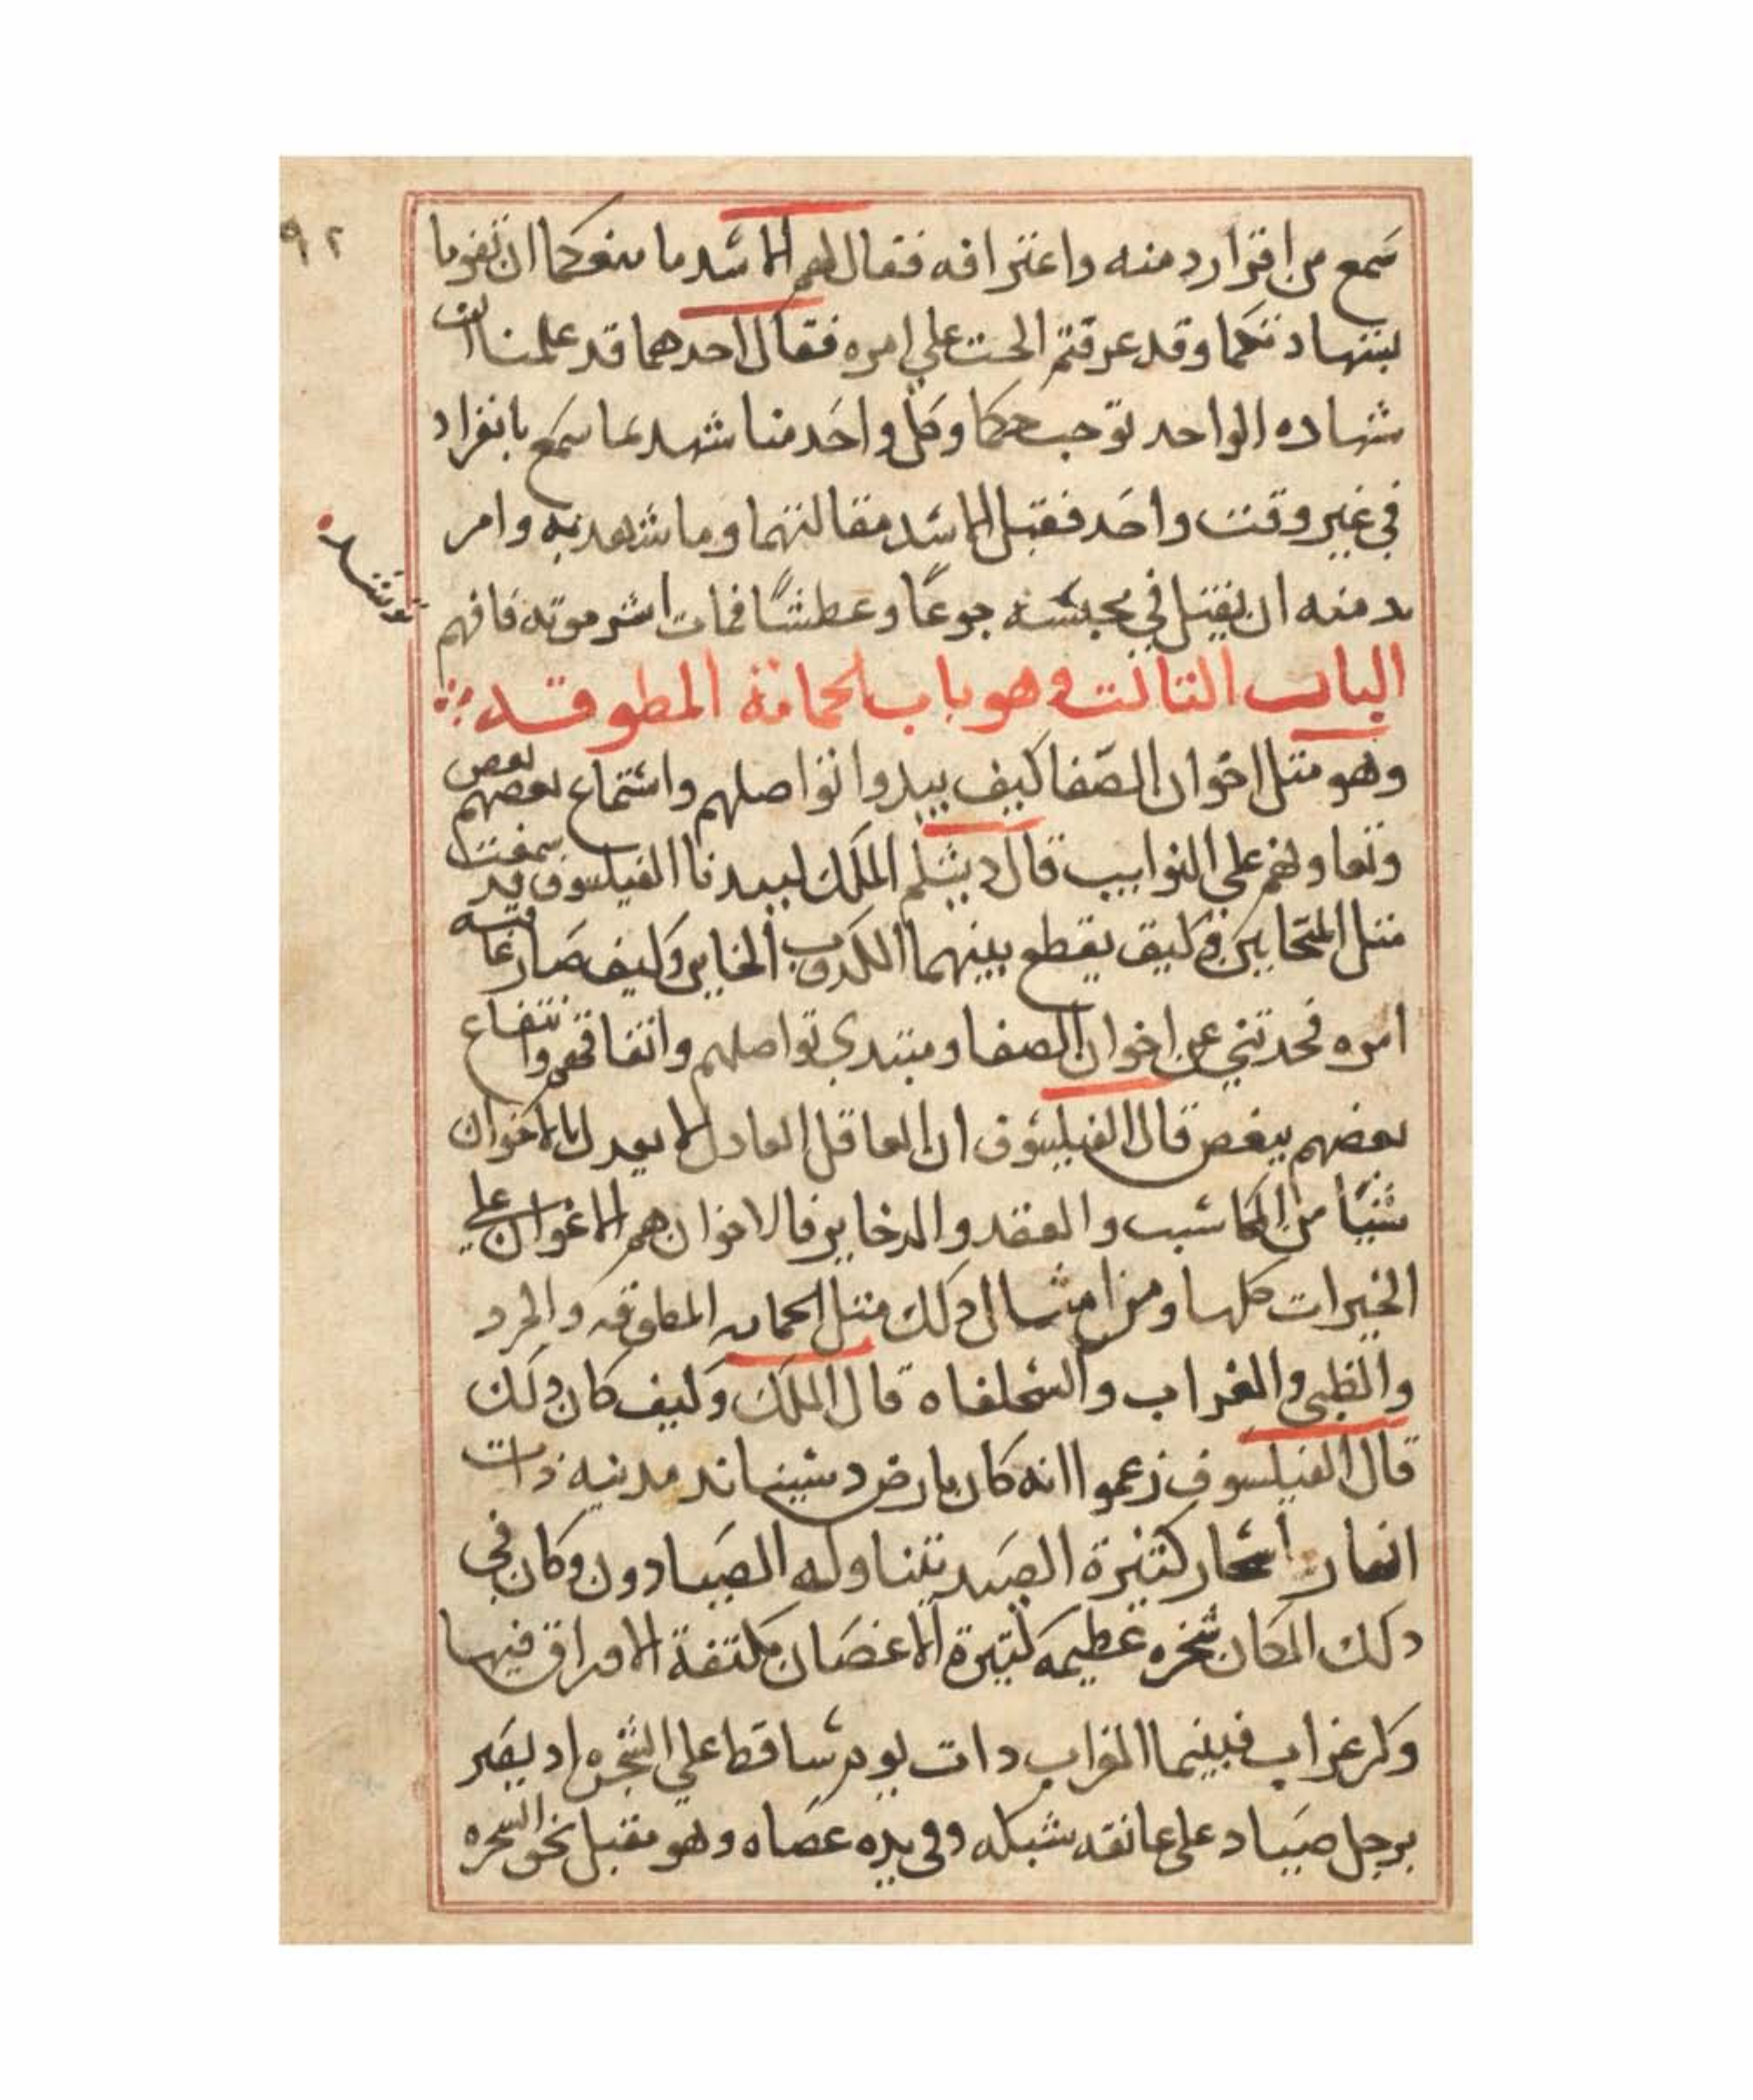 ٩٢
سمع من اقرار دمنه واعترافه فقال لهم الاسد ما منعكما ان تقوما
بشهادتكما وقد عرفتم الحث علي امره فقال احدهما قد علمنا ان
شهاده الواحد توجب حكما وكل واحد منا شهد بما سمع بانفراد
في غير وقت واحد فقبل الاسد مقالتهما وما شهد به وامر
بدمنه ان يقتل في محبسه جوعًا وعطشًا فمات اشر موته فافهم
الباب الثالث وهو باب الحمامة المطوقه
وهو مثل اخوان الصفا كيف يبدوا تواصلهم واستماع بعضهم بعض
وتعاونهم علي النوايب قال دبشلم الملك لبيدبا الفيلسوف قد سمعت
مثل المتحابين وكيف يقطع بينهما الكدوب الخاين وكيف صار عاقبته
امره فحدثني عن اخوان الصفا ومبتدي تواصلهم واتفاقهم وانتفاع
بعضهم ببعض قال الفيلسوف ان العاقل العادل لا يعدل بالاخوان
شيًا من المكاسب والعقد والدخاير فالاخوان هم الاعوان علي
الخيرات كلها ومن امثال دلك مثل الحمامه المطوقه والجرد
والظبي والغراب والسحلفاه قال الملك وكيف كان دلك
قال الفيلسوف زعموا انه كان بارض دشيناند مدينه ذات
انهار واشجار كثيرة الصيد يتناوله الصيادون وكان في
دلك المكان شجره عظيمه كثيرة الاغصان ملتفة الاوراق فيها
وكر غراب فبينما الغراب دات يوم ساقطا علي الشجره اد بصر
برجل صياد علي عاتقه شبكه وفي يده عصاه وهو مقبل نحو الشجره